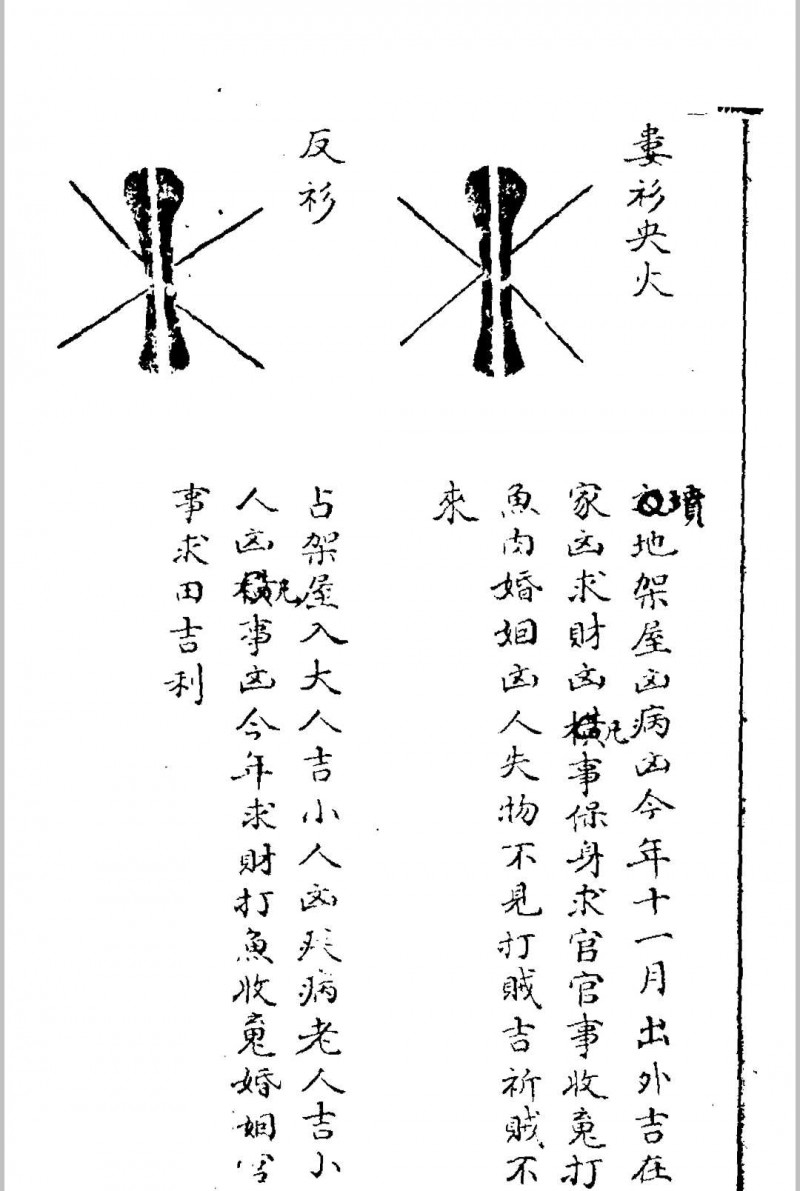 婁衫央火
墳地架屋凶病凶今年十一月出外吉在
家凶求財凶橫事保身求官官事收魂打
魚肉婚姻凶人失物不見打賊吉祈賊不
來
反衫
占架屋入大人吉小人凶疾病老人吉小
人凶橫事凶今年求財打魚收魂婚姻官
事求田吉利